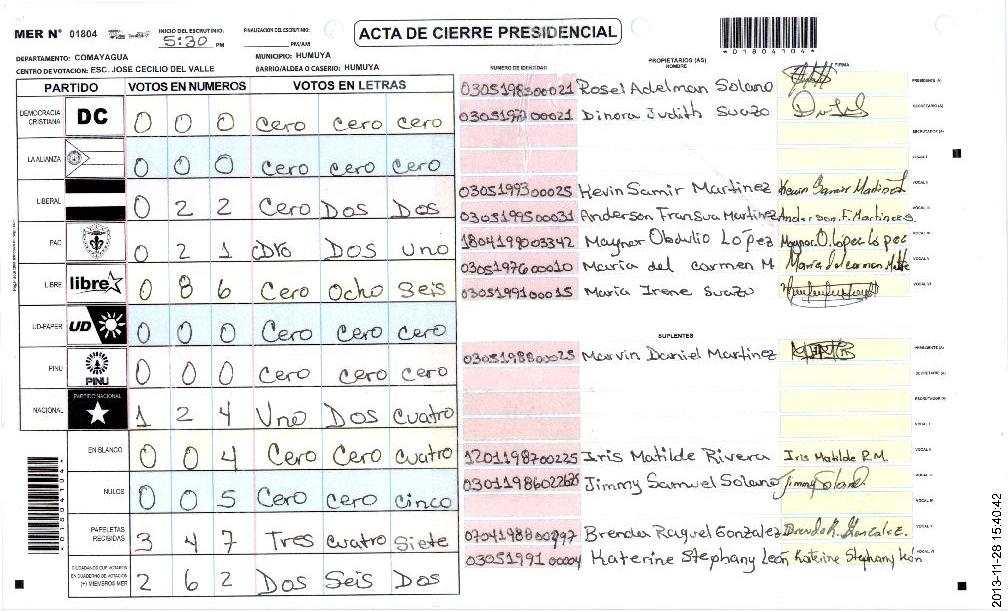 MER N° 01804
INICIO DEL ESCRUTINIO: 5:30 PM
FINALIZACION DEL ESCRUTINIO: PM/AM
ACTA DE CIERRE PRESIDENCIAL
*01804104*
DEPARTAMENTO: COMAYAGUA
MUNICIPIO: HUMUYA
CENTRO DE VOTACION: ESC. JOSE CECILIO DEL VALLE
BARRIO/ALDEA O CASERIO: HUMUYA
PARTIDO VOTOS EN NUMEROS VOTOS EN LETRAS
DEMOCRACIA CRISTIANA DC 0 0 0 Cero cero cero
LA ALIANZA 0 0 0 Cero cero cero
LIBERAL 0 2 2 Cero Dos Dos
PAC 0 2 1 DOS uno
LIBRE libre 0 8 6 Cero Ocho seis
UD-FAPER UD 0 0 0 Cero Cero cero
PINU PINU 0 0 0 Cero cero cero
NACIONAL PARTIDO NACIONAL 1 2 4 Uno Dos cuatro
EN BLANCO 0 0 4 Cero Cero cuatro
NULOS 0 0 5 Cero cero cinco
PAPELETAS RECIBIDAS 3 4 7 Tres cuatro siete
CIUDADANOS QUE VOTARON EN CUADERNO DE VOTACION (+) MIEMBROS MER 2 6 2 Dos Seis Dos
PROPIETARIOS (AS)
NUMERO DE IDENTIDAD NOMBRE FIRMA
Rosel Adelman Solano PRESIDENTE (A)
Dinora Judith Suazo SECRETARIO (A)
ESCRUTADOR (A)
VOCAL I
0305199300025 Kevin Samir Martinez Kevin Samir Martinez VOCAL II
0305199500031 Anderson Martinez Anderson.F.Martinez S. VOCAL III
1804199003342 Maynor Obdulio López Maynor.O.López López
0305197600010 Maria del carmen M Maria del carmen VOCAL V
0305199100015 Maria Irene Suazo VOCAL VI
SUPLENTES
0305198800025 Marvin Daniel Martinez PRESIDENTE (A)
SECRETARIO (A)
ESCRUTADOR (A)
VOCAL I
1201198700225 Iris Matilde Rivera Iris Matilde R.M.
Jimmy Samuel Solano Jimmy Solano
VOCAL IV
Brenda Raquel Gonzalez Brenda R. Gonzalez. VOCAL V
0305199100004 Katerine Stephany Leon Katerine Stephany León VOCAL VI
*01804104*
2013-11-28 15:40:42